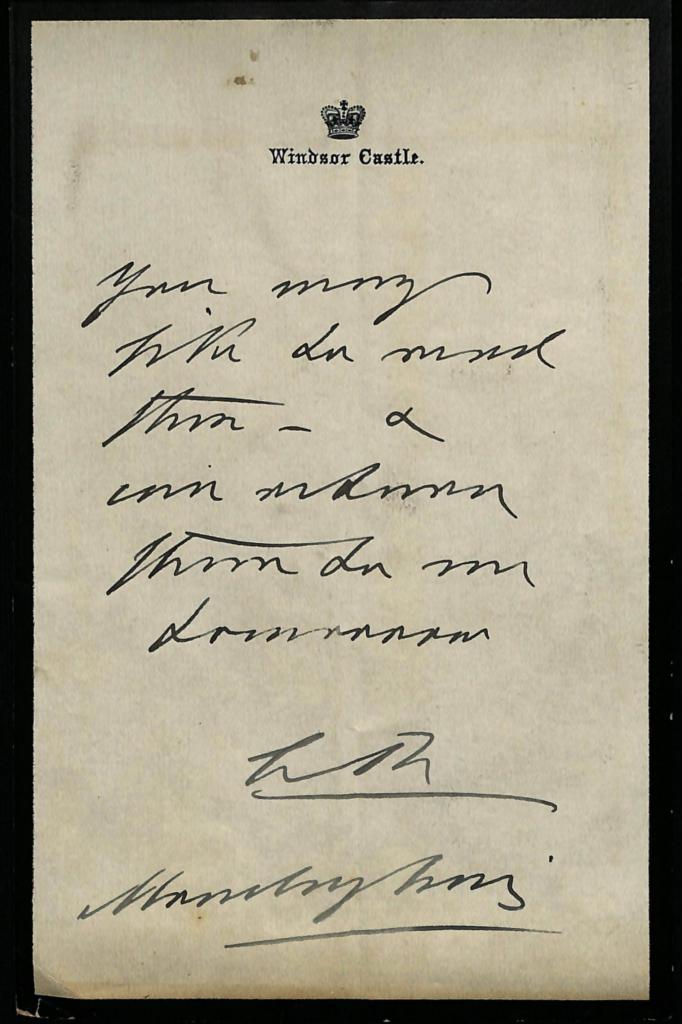 Windsor Castle.
You may
like to read
them - &
can return
them to me
tomorrow
Monday